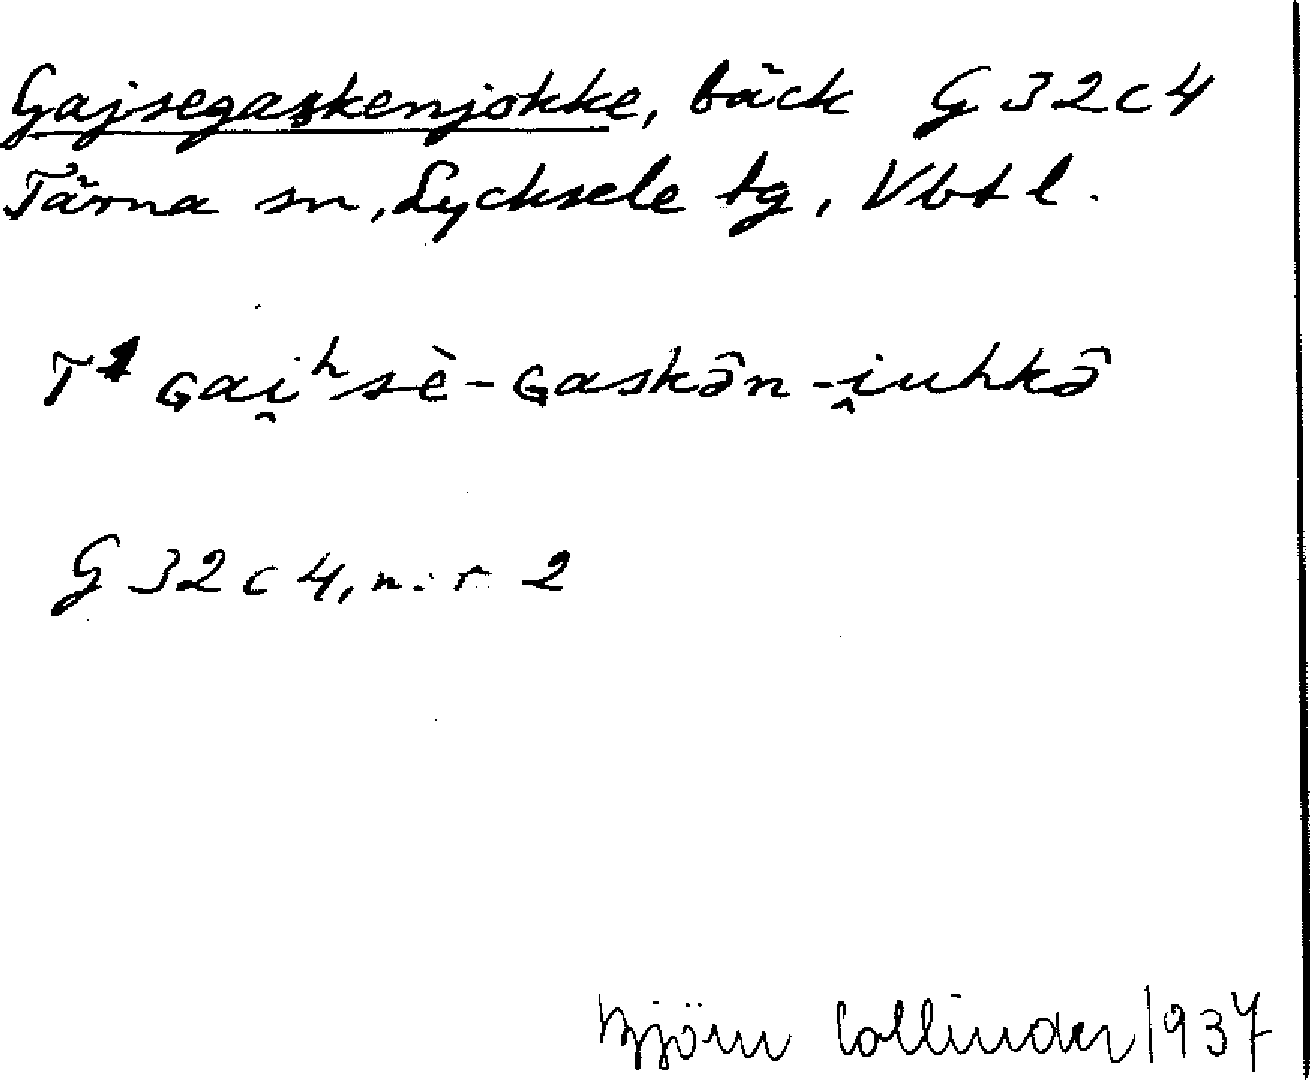 Gajsegaskenjokke, bäck G 32 c 4
Tärna sn, Lycksele tg, Vbtl.
T1 Gai̯ʰsè-Gaskə̂n-i̯uhkə̂
G 32 c 4, n:r 2
Björn Collinder 1937